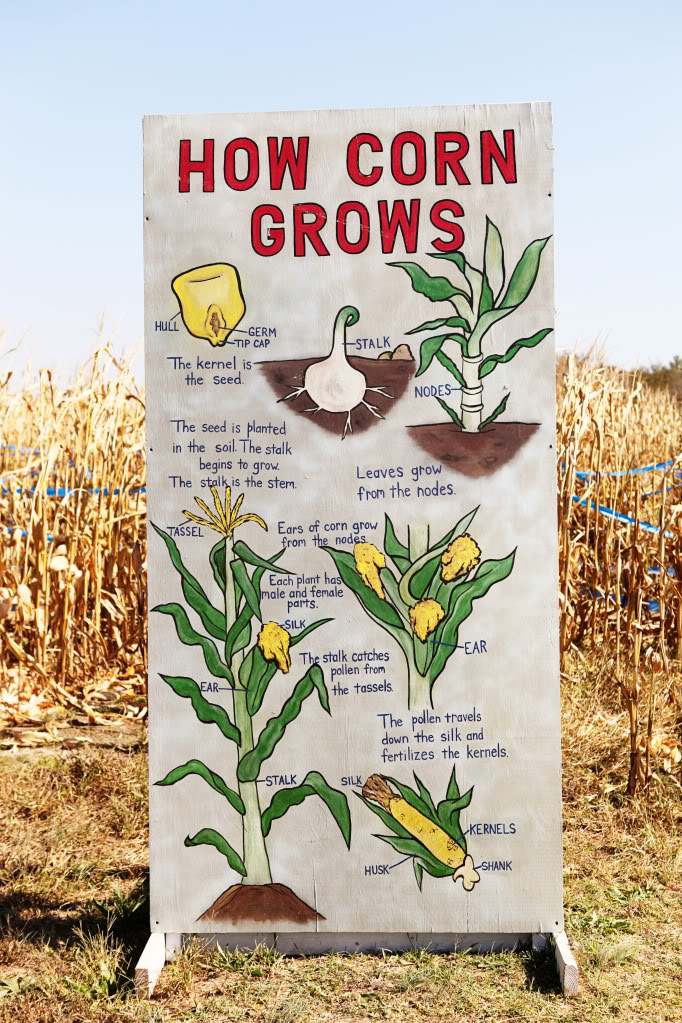 HOW CORN
GROWS
HULL
GERM
TIP CAP
The kernel is
the seed.
STALK
NODES
The seed is planted
in the soil. The stalk
begins to grow.
The stalk is the stem.
Leaves grow
from the nodes.
TASSEL
Ears of corn grow
from the nodes.
Each plant has
male and female
parts.
SILK
EAR
The stalk catches
pollen from
the tassels.
EAR
The pollen travels
down the silk and
fertilizes the kernels.
STALK
SILK
KERNELS
HUSK
SHANK